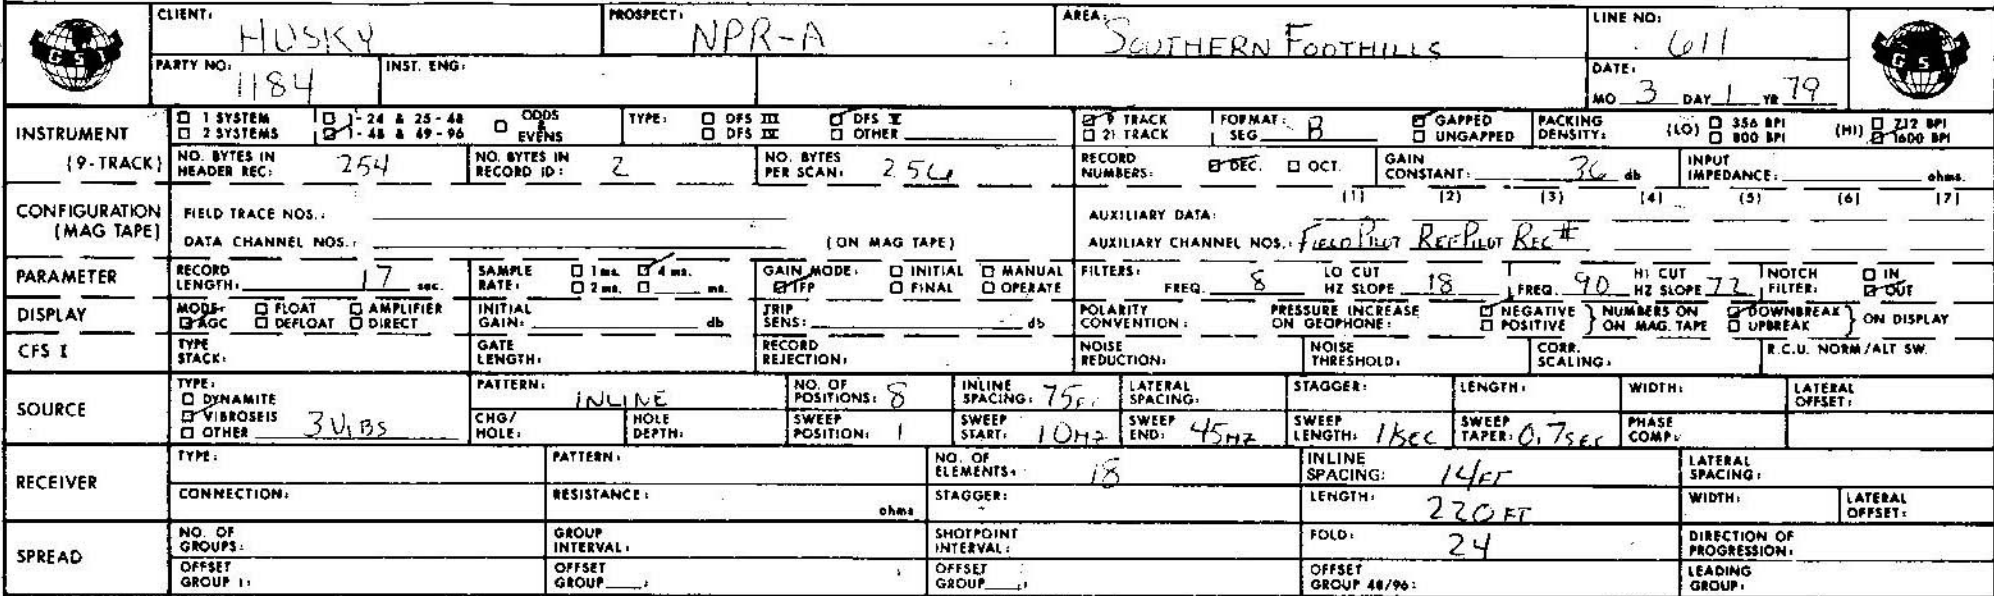 CLIENT: HUSKY PROSPECT: NPR-A AREA: SOUTHERN FOOTHILLS LINE NO: 611
GSI GSI
PARTY NO: 1184 INST. ENG: DATE: MO 3 DAY 1 YR 79
INSTRUMENT (9-TRACK)
□ 1 SYSTEM □ 1-24 & 25-48 □ ODDS & EVENS TYPE: □ DFS III ☑ DFS V ☑ 9 TRACK FORMAT: SEG B ☑ GAPPED PACKING DENSITY: (LO) □ 356 BPI (HI) □ 712 BPI
□ 2 SYSTEMS ☑ 1-48 & 49-96 □ DFS IV □ OTHER □ 21 TRACK □ UNGAPPED □ 800 BPI ☑ 1600 BPI
NO. BYTES IN HEADER REC: 254 NO. BYTES IN RECORD ID: 2 NO. BYTES PER SCAN: 256 RECORD NUMBERS: ☑ DEC. □ OCT. GAIN CONSTANT: 36 db INPUT IMPEDANCE: ohms.
CONFIGURATION (MAG TAPE)
FIELD TRACE NOS.: AUXILIARY DATA: (1) (2) (3) (4) (5) (6) (7)
DATA CHANNEL NOS.: (ON MAG TAPE) AUXILIARY CHANNEL NOS.: FIELD PILOT REF PILOT REC #
PARAMETER RECORD LENGTH: 17 sec. SAMPLE RATE: □ 1 ms. ☑ 4 ms. □ 2 ms. □ ms. GAIN MODE: □ INITIAL □ MANUAL ☑ IFP □ FINAL □ OPERATE FILTERS: FREQ. 8 LO CUT HZ SLOPE 18 FREQ. 90 HI CUT HZ SLOPE 72 NOTCH FILTER: □ IN ☑ OUT
DISPLAY MODE: □ FLOAT □ AMPLIFIER ☑ AGC □ DEFLOAT □ DIRECT INITIAL GAIN: db TRIP SENS: db POLARITY CONVENTION: PRESSURE INCREASE ON GEOPHONE: ☑ NEGATIVE □ POSITIVE } NUMBERS ON ON MAG. TAPE ☑ DOWNBREAK □ UPBREAK } ON DISPLAY
CFS I TYPE STACK: GATE LENGTH: RECORD REJECTION: NOISE REDUCTION: NOISE THRESHOLD: CORR. SCALING: R.C.U. NORM/ALT SW.
SOURCE
TYPE: □ DYNAMITE ☑ VIBROSEIS □ OTHER 3 VIBS
PATTERN: INLINE NO. OF POSITIONS: 8 INLINE SPACING: 75 FT LATERAL SPACING: STAGGER: LENGTH: WIDTH: LATERAL OFFSET:
CHG/HOLE: HOLE DEPTH: SWEEP POSITION: 1 SWEEP START: 10HZ SWEEP END: 45HZ SWEEP LENGTH: 11SEC SWEEP TAPER: 0.7SEC PHASE COMP:
RECEIVER
TYPE: PATTERN: NO. OF ELEMENTS: 18 INLINE SPACING: 14FT LATERAL SPACING:
CONNECTION: RESISTANCE: ohms STAGGER: LENGTH: 220 FT WIDTH: LATERAL OFFSET:
SPREAD
NO. OF GROUPS: GROUP INTERVAL: SHOTPOINT INTERVAL: FOLD: 24 DIRECTION OF PROGRESSION:
OFFSET GROUP 1: OFFSET GROUP : OFFSET GROUP : OFFSET GROUP 48/96: LEADING GROUP: